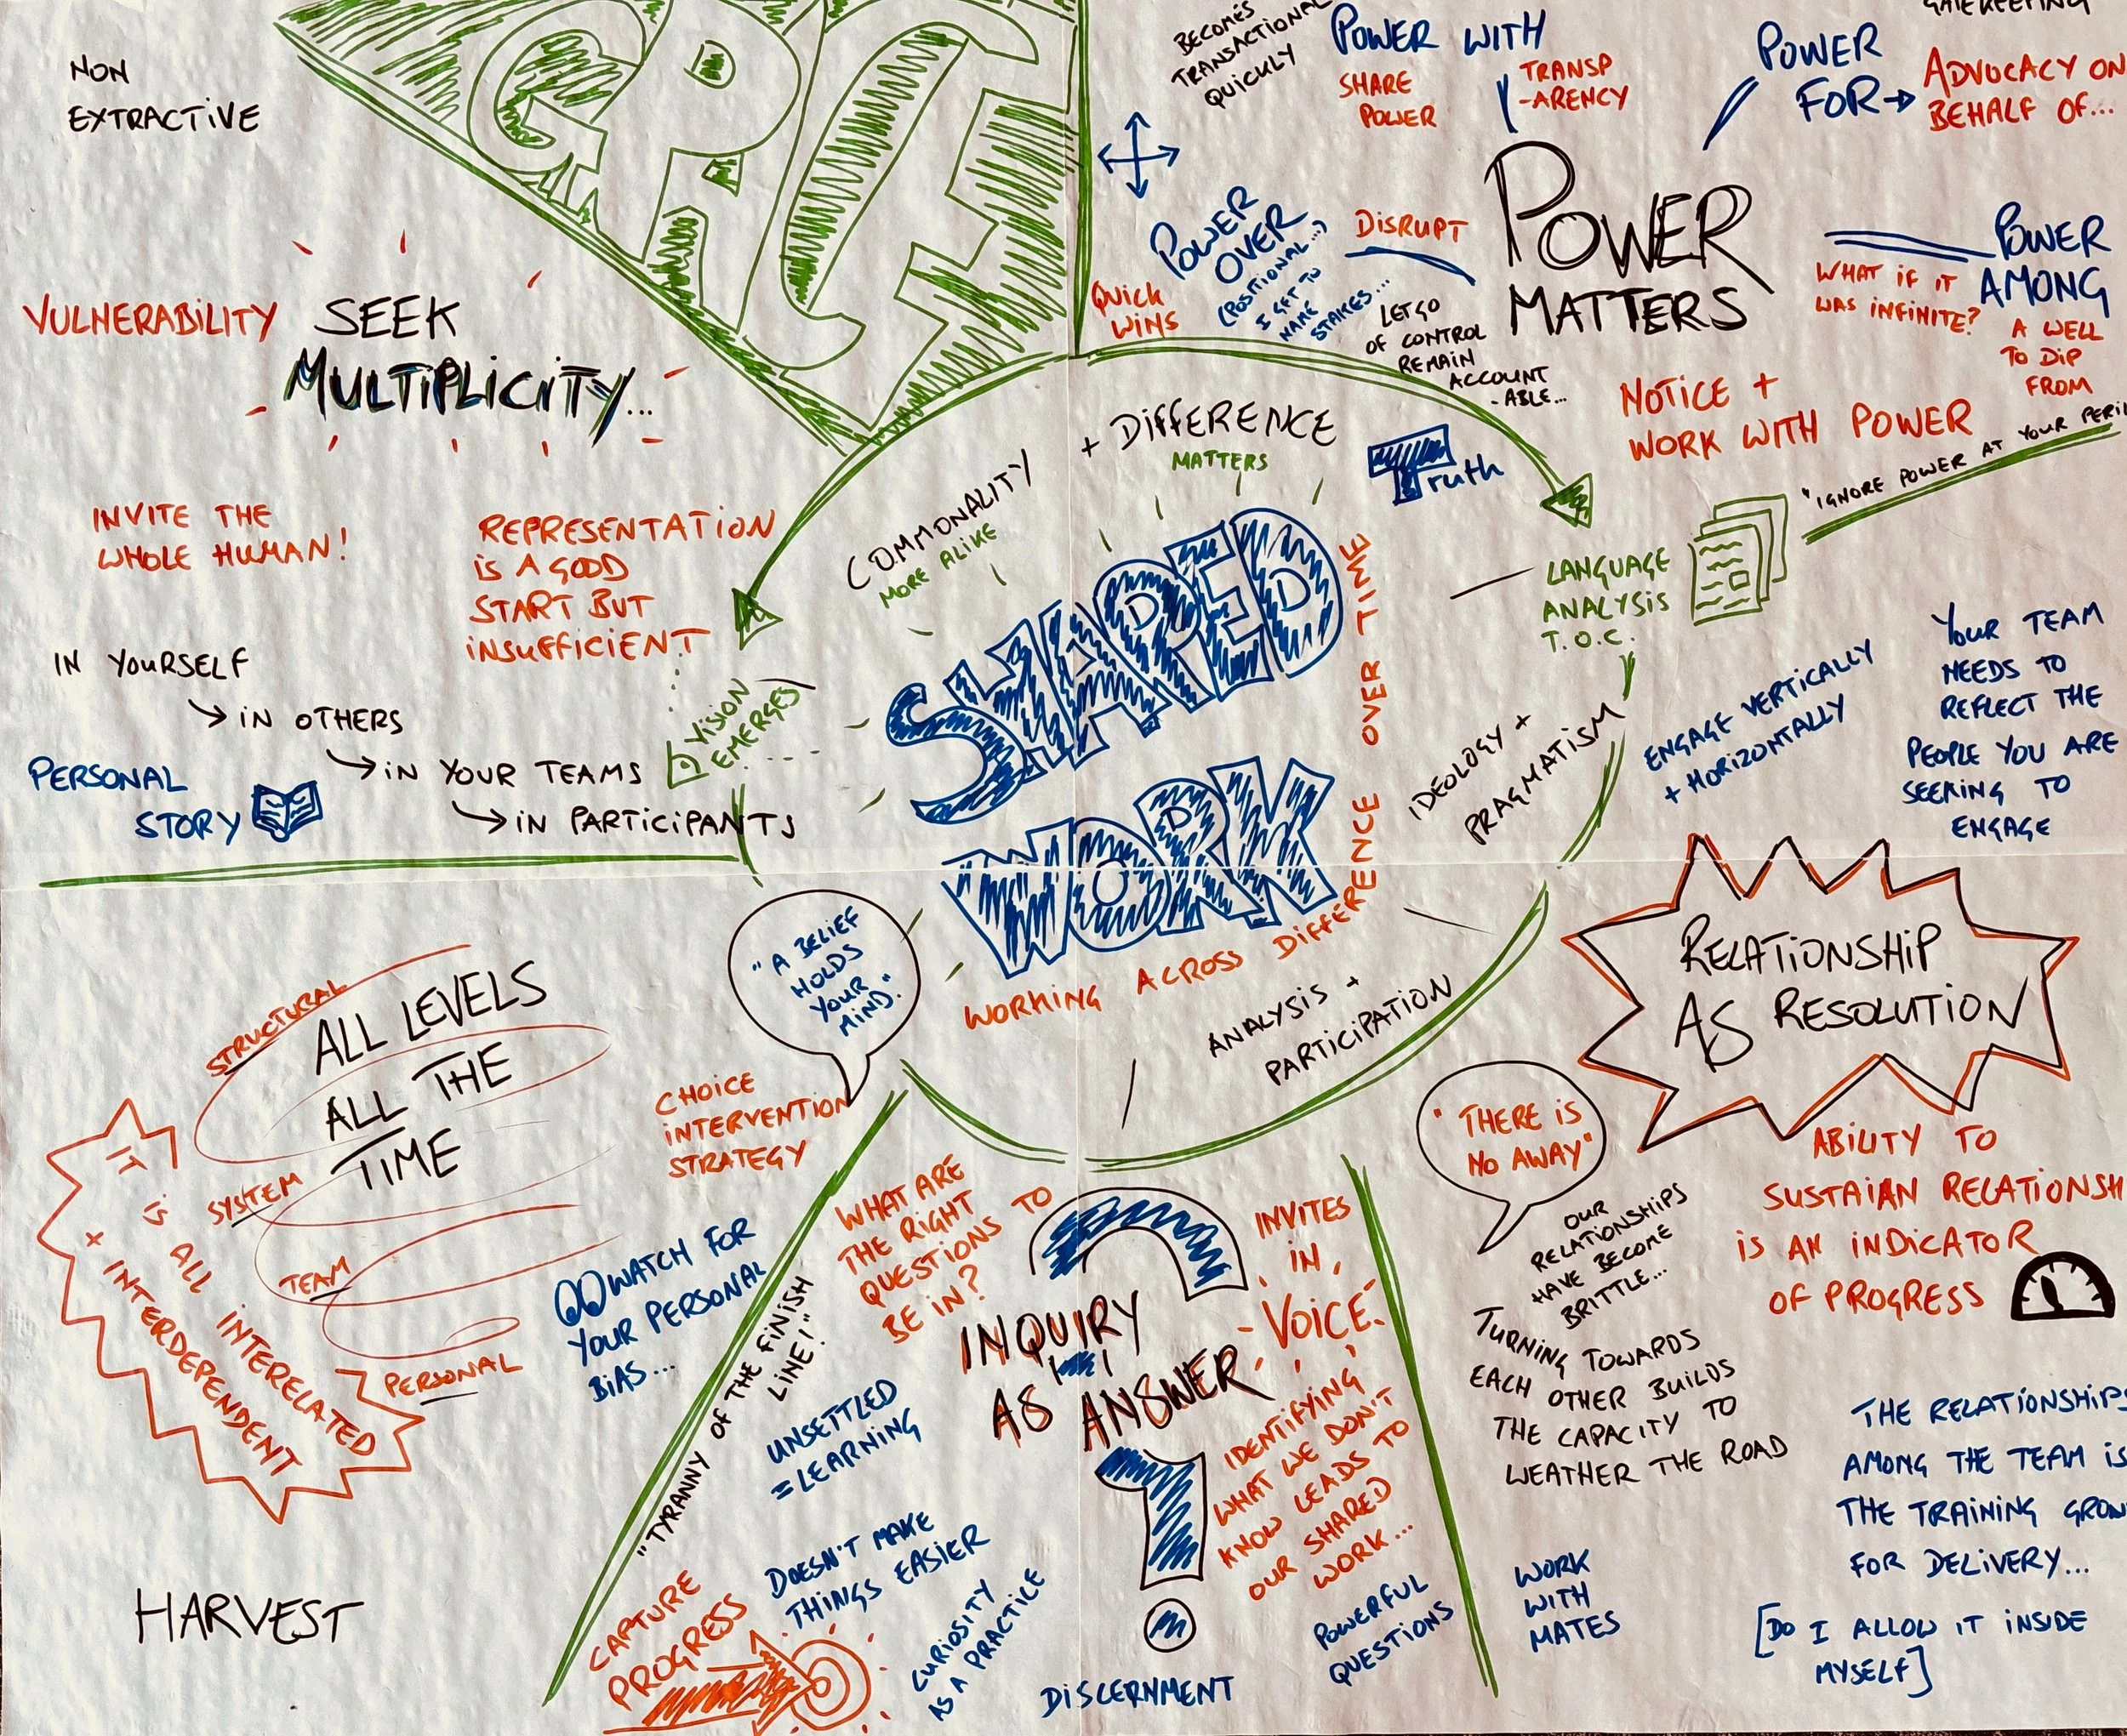 NON
EXTRACTIVE
VULNERABILITY
SEEK
MULTIPLICITY...
INVITE THE
WHOLE HUMAN!
REPRESENTATION
IS A GOOD
START BUT
INSUFFICIENT
IN YOURSELF
IN OTHERS
IN YOUR TEAMS
IN PARTICIPANTS
PERSONAL
STORY
VISION
EMERGES
BECOMES
TRANSACTIONAL
QUICKLY
POWER WITH
SHARE
POWER
TRANSP
-ARENCY
GATEKEEPING
POWER
FOR
ADVOCACY ON
BEHALF OF...
POWER
OVER
(POSITIONAL...)
I GET TO
NAME
STAKES...
QUICK
WINS
DISRUPT
LET GO
OF CONTROL
REMAIN
ACCOUNT
-ABLE...
POWER
MATTERS
POWER
AMONG
WHAT IF IT
WAS INFINITE?
A WELL
TO DIP
FROM
NOTICE +
WORK WITH POWER
"IGNORE POWER AT YOUR PERIL
COMMONALITY
MORE ALIKE
+ DIFFERENCE
MATTERS
Truth
SHARED
WORK
WORKING ACROSS DIFFERENCE OVER TIME
LANGUAGE
ANALYSIS
T.O.C.
IDEOLOGY +
PRAGMATISM
ANALYSIS +
PARTICIPATION
ENGAGE VERTICALLY
+ HORIZONTALLY
YOUR TEAM
NEEDS TO
REFLECT THE
PEOPLE YOU ARE
SEEKING TO
ENGAGE
"A BELIEF
HOLDS
YOUR
MIND."
STRUCTURAL
ALL LEVELS
ALL THE
TIME
SYSTEM
TEAM
PERSONAL
IT IS ALL INTERELATED
+ INTERDEPENDENT
HARVEST
CHOICE
INTERVENTION
STRATEGY
WATCH FOR
YOUR PERSONAL
BIAS...
"TYRANNY OF THE FINISH
LINE!"
WHAT ARE
THE RIGHT
QUESTIONS TO
BE IN?
INQUIRY
AS ANSWER
INVITES
IN
VOICE
UNSETTLED
= LEARNING
IDENTIFYING
WHAT WE DON'T
KNOW LEADS TO
OUR SHARED
WORK...
DOESN'T MAKE
THINGS EASIER
CAPTURE
PROGRESS
CURIOSITY
IS A PRACTICE
DISCERNMENT
POWERFUL
QUESTIONS
RELATIONSHIP
AS RESOLUTION
"THERE IS
NO AWAY"
ABILITY TO
SUSTAIAN RELATIONSH
IS AN INDICATOR
OF PROGRESS
OUR
RELATIONSHIPS
HAVE BECOME
BRITTLE...
TURNING TOWARDS
EACH OTHER BUILDS
THE CAPACITY TO
WEATHER THE ROAD
THE RELATIONSHIPS
AMONG THE TEAM IS
THE TRAINING GROUN
FOR DELIVERY...
[DO I ALLOW IT INSIDE
MYSELF]
WORK
WITH
MATES